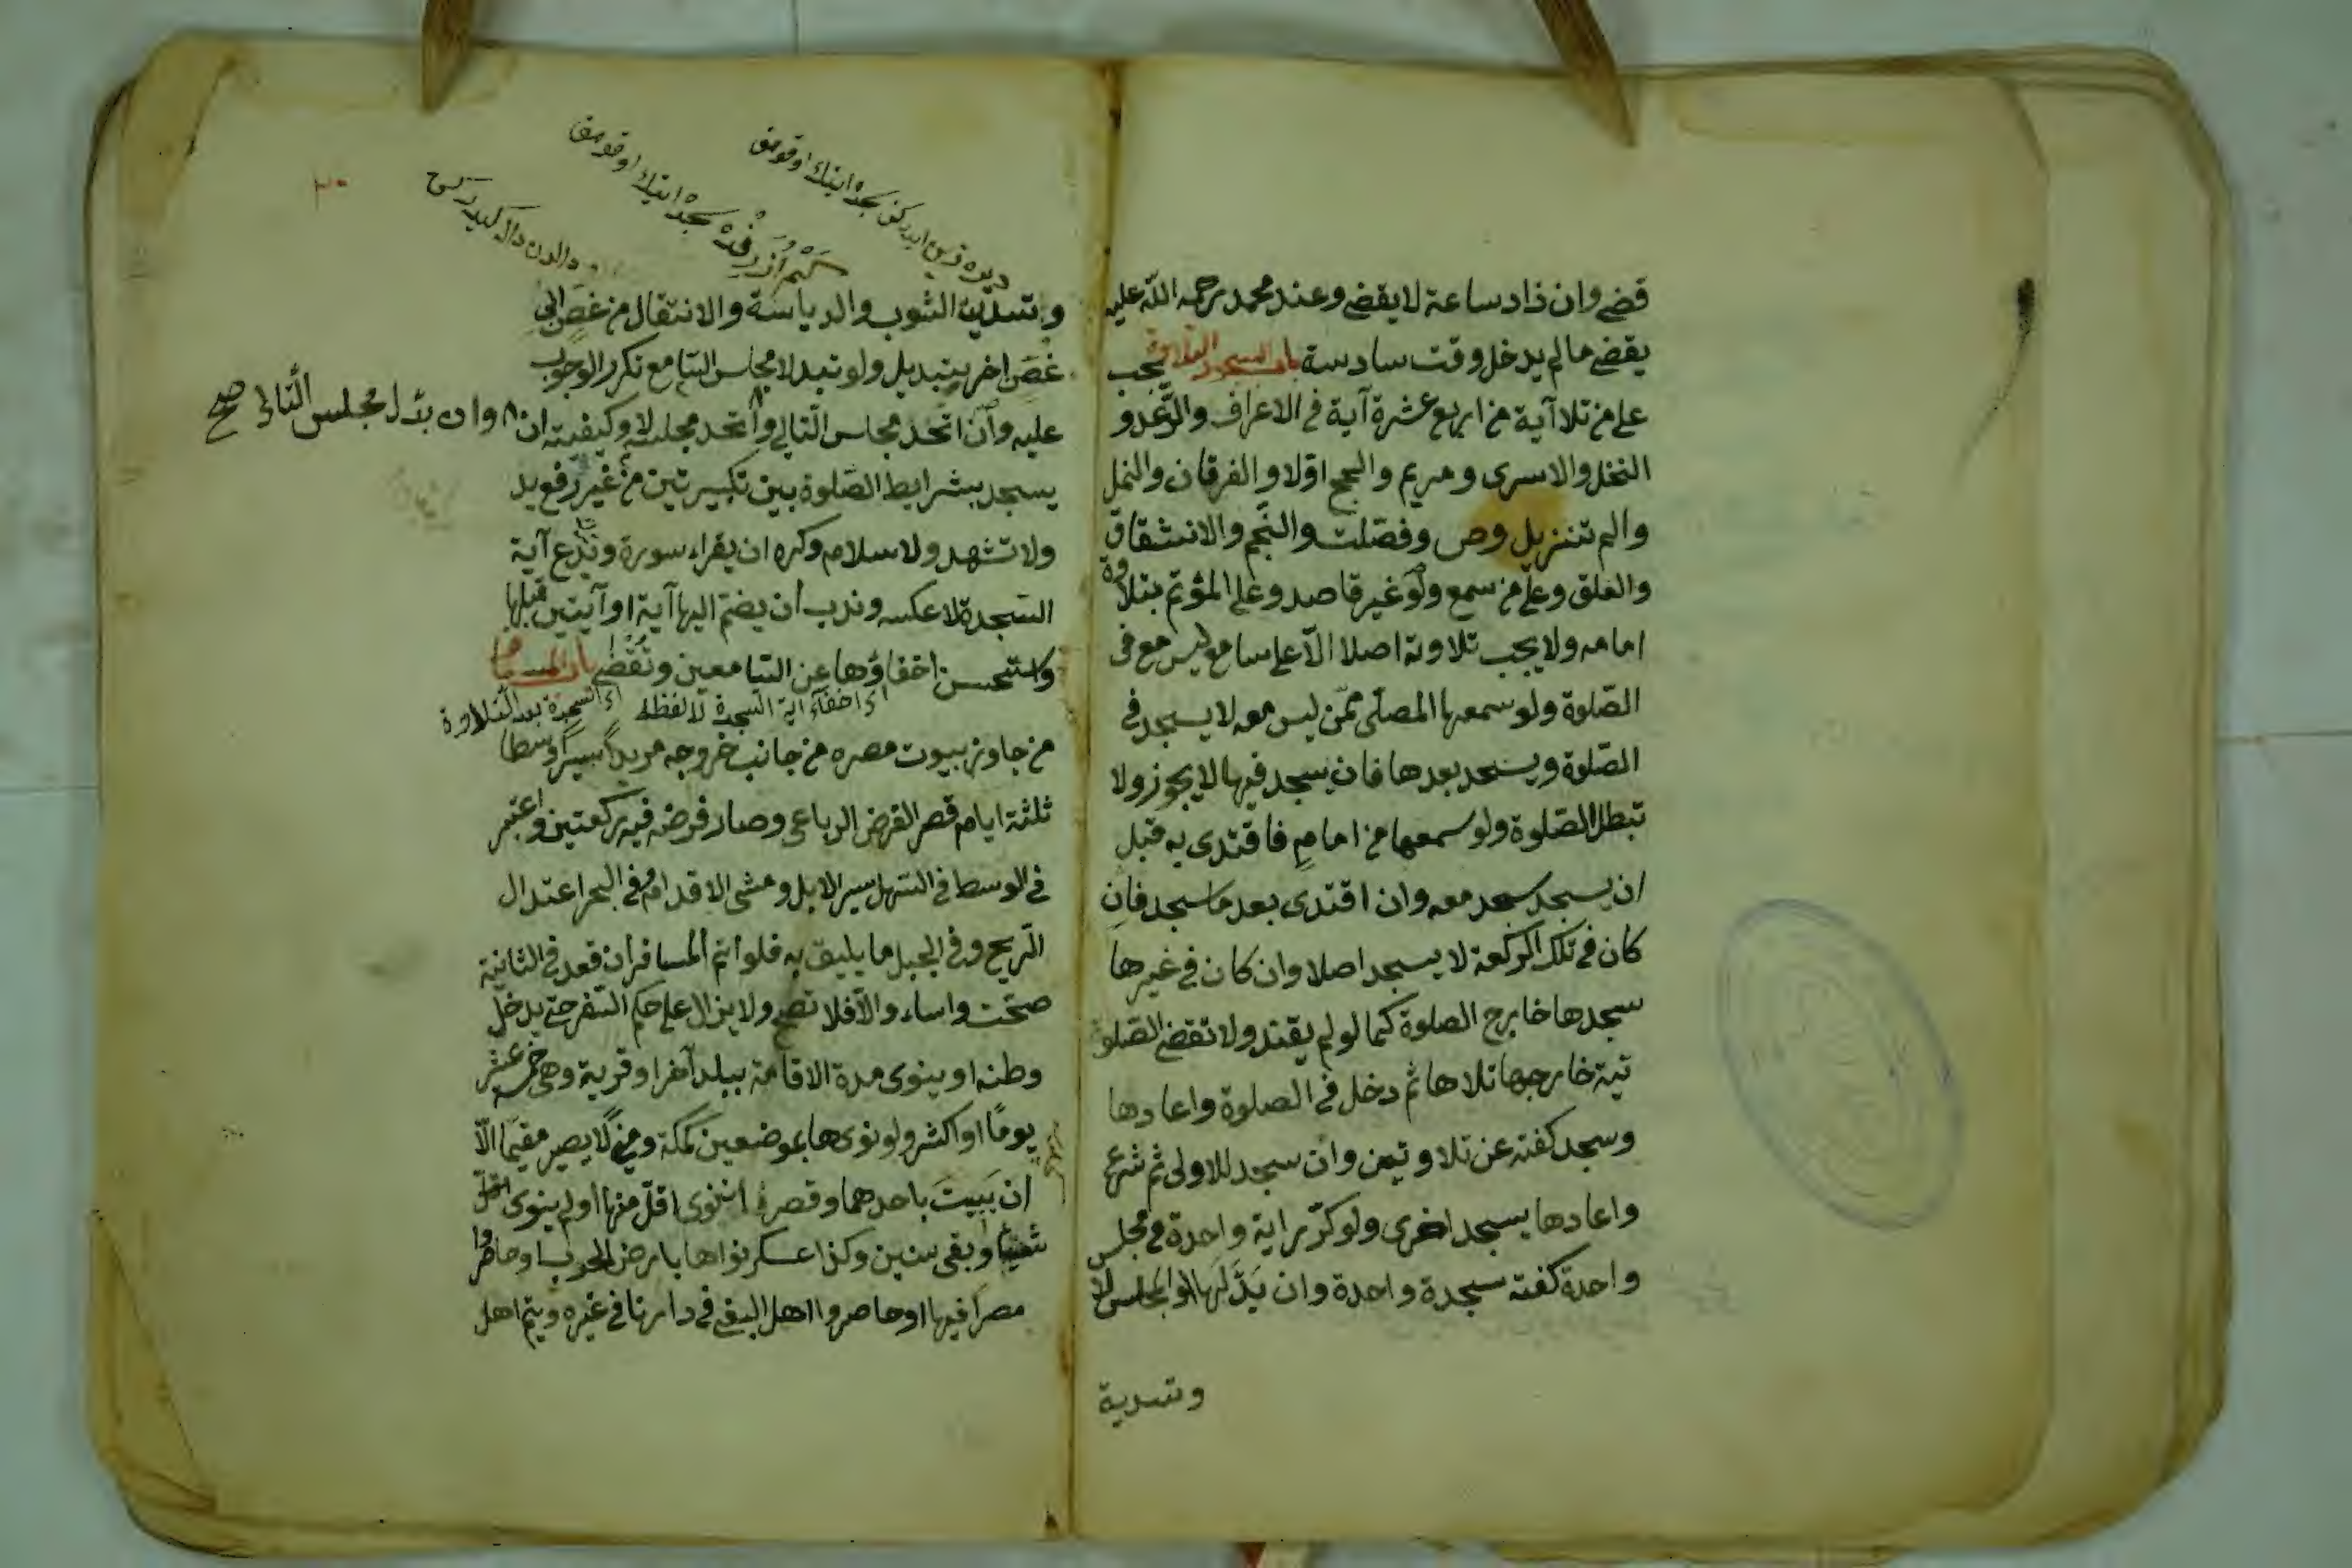 قضى وان ذاد ساعة لا يقضى وعند محمد رحمه الله عليه
يقضى ما لم يدخل وقت سادسة باب السجود التلاوة يجب
على من تلا آية من اربع عشرة آية فى الاعراف والرّعد و
النحل والاسرى ومريم والحج اوّلا والفرقان والنمل
والم تنزيل وص وفصّلت والنّجم والانشقاق
والعلق وعلى من سمع ولو غير قاصد وعلى المؤتم بتلاوة
امامه ولا يجب تلاوته اصلا الّا على سامع ليس معه فى
الصّلوة ولو سمعها المصلّى ممّن ليس معه لا يسجد فى
الصّلوة ويسجد بعدها فان سجد فيها لا يجوز ولا
تبطل الصّلوة ولو سمعها من امامٍ فاقتدى به قبل
ان يسجد سجد معه وان اقتدى بعد ما سجد فان
كان فى تلك الركعة لا يسجد اصلا وان كان فى غيرها
سجدها خارج الصلوة كما لو لم يقتد ولا تقضى الصّلو
تية خارجها تلاها ثم دخل فى الصلوة واعادها
وسجد كفته عن تلاوتين وان سجد للاولى ثم شرع
واعادها يسجد اخرى ولو كرّر اية واحدة فى مجلس
واحدة كفته سجدة واحدة وان بدّلها او المجلس لا
وتسدية
ديره قرين ايدركن سجده ايتك اوقومق
اوزرنده سجده ايتك اوقومق
دالدن داله كيدرسه
٣٠
وتسدية الثوب والدياسة والانتقال من غصن الى
غصن اخر تبديل ولو تبدل مجلس السّامع تكرر الوجوب
عليه وان اتحد مجلس التالى واتحد مجلسه لا وكيفيته ان
وان بدّل مجلس التّالى صح
يسجد بشرايط الصّلوة بين تكبيرتين من غير رفع يد
ولا تشهد ولا سلام وكره ان يقراء سورة ويدع آية
السّجدة لا عكسه وندب ان يضمّ اليها آية او آيتين قبلها
واستحسن اخفاؤها عن السّامعين وتقضى باب المسافر
اى اخفاء اية السّجدة لا لفظه اى السّجدة بعد التّلاوة
من جاوز بيوت مصره من جانب خروجه مريداً سيراً وسطا
ثلثة ايام قصر الفرض الرباعى وصار فرضه فيه ركعتين واعتبر
فى الوسط فى السّهل سير الابل ومشى الاقدام وفى البحر اعتدال
الرّيح وفى الجبل ما يليق به فلو اتم المسافر ان قعد فى الثانية
صحّت واساء والّا فلا تصح ولا يزال على حكم السّفر حتى يدخل
وطنه او ينوى مدة الاقامة ببلد آخر او قرية وهى خمسة عشر
يومًا او اكثر ولو نوى ها بموضعين كمكة ومنى لا يصير مقيما الّا
ان يبيت باحدهما وقصر ان نوى اقلّ منها او لم ينوى
شيئا وبقى سنين وكذا عسكر نواها بارض الحرب او حاصروا
مصرا فيها او حاصروا اهل البغى فى دارنا فى غيره ويتم اهل